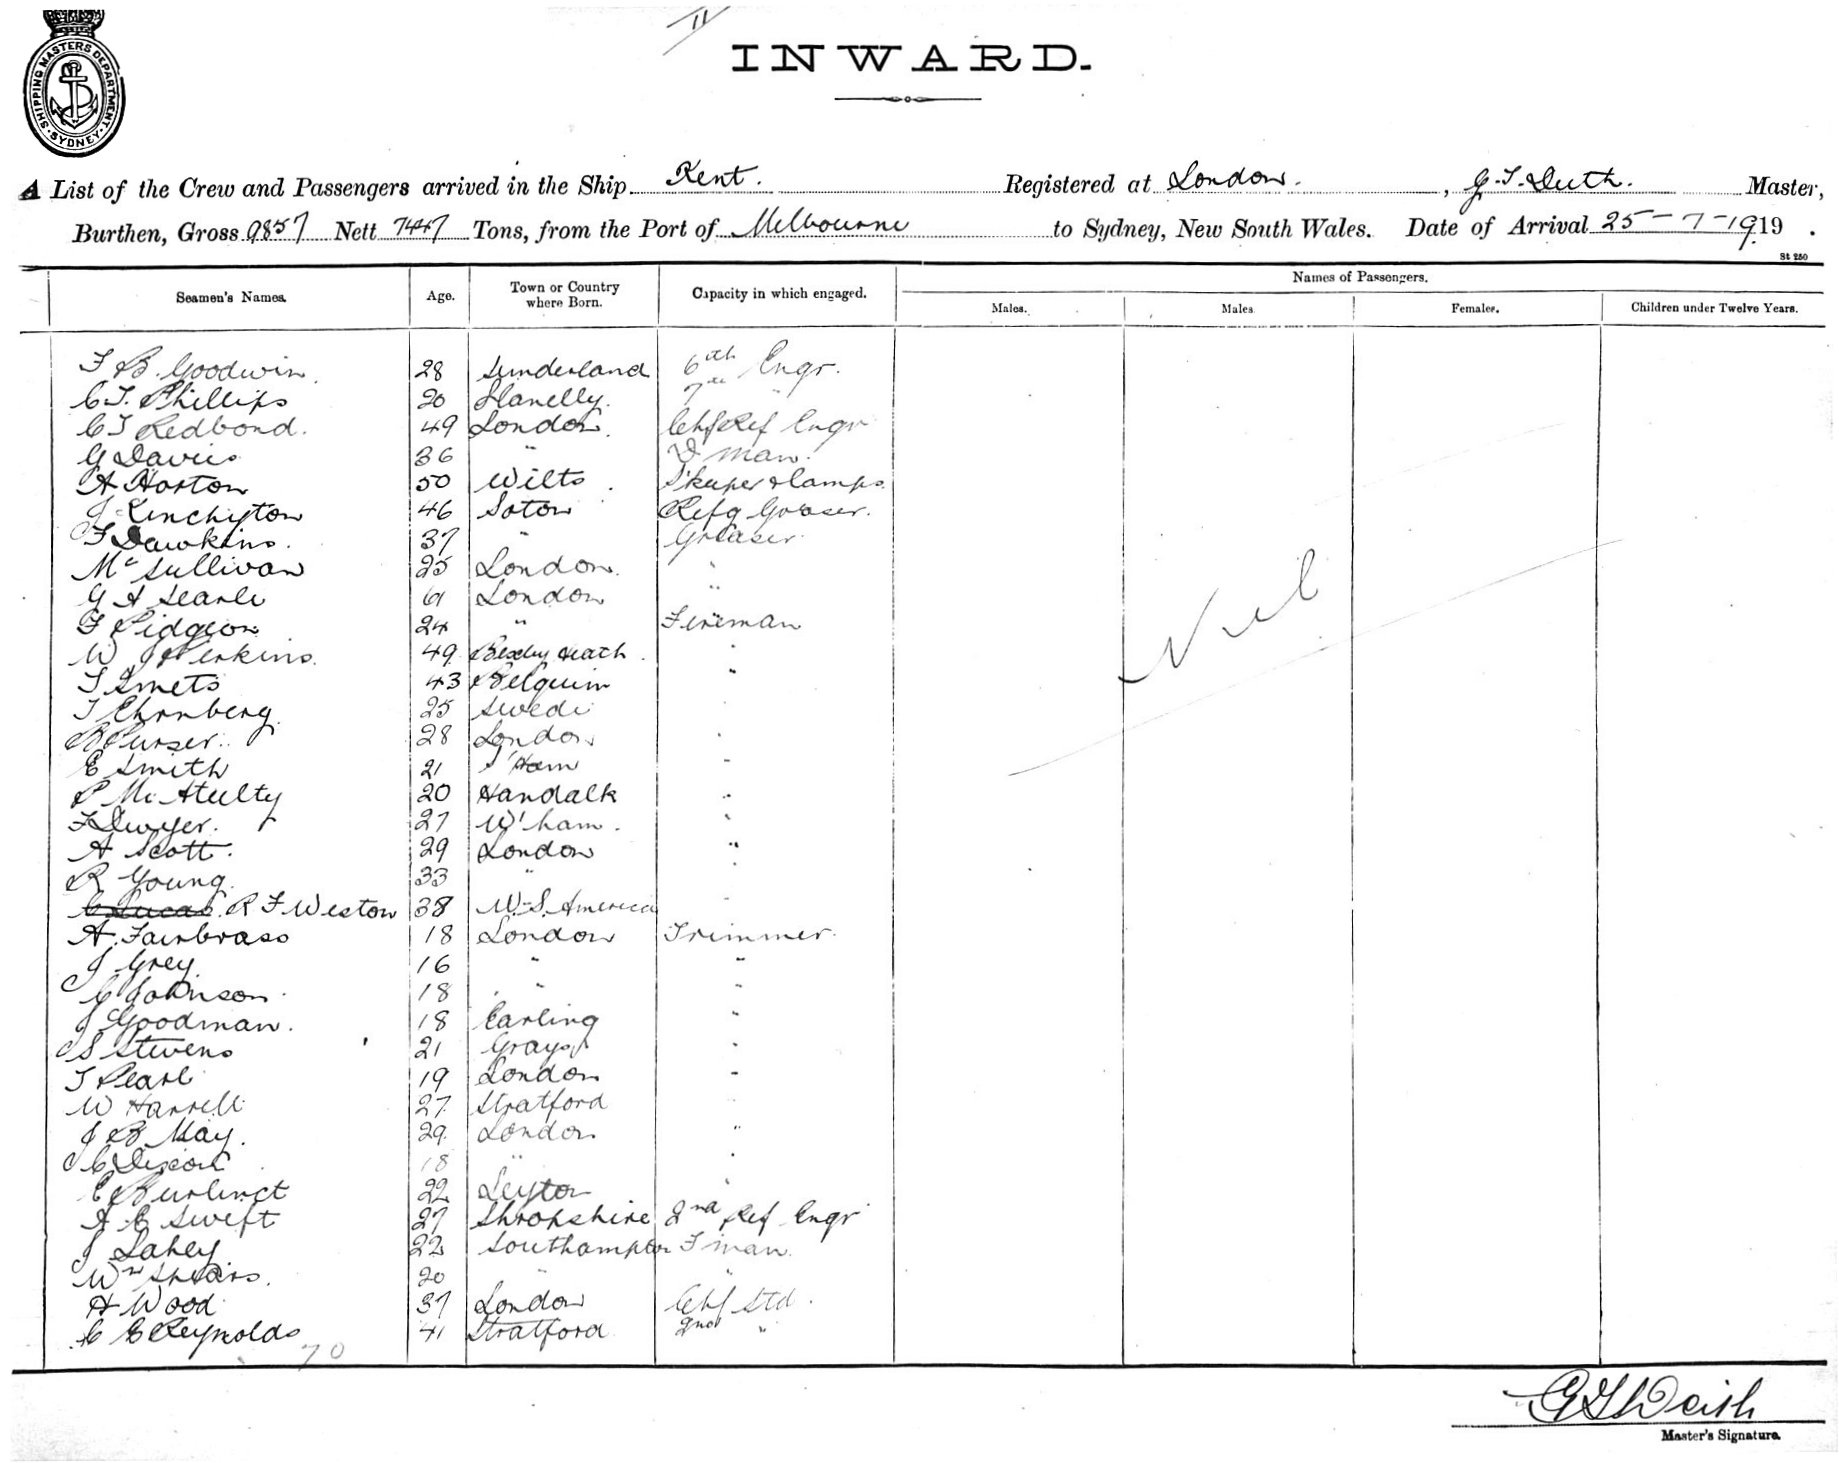 11
INWARD.
SHIPPING MASTERS DEPARTMENT. SYDNEY
A List of the Crew and Passengers arrived in the Ship Kent. Registered at London. , G. T. Master,
Burthen, Gross 9857 Nett 7447 Tons, from the Port of Melbourne to Sydney, New South Wales. Date of Arrival 25-7-1919 .
St 250
Seamen's Names. Age. Town or Country where Born. Capacity in which engaged. Names of Passengers.
Males. Males Females. Children under Twelve Years.
F B. Goodwin 28 Sunderland 6th Engr.
C T. Phillips 20 Llanelly. 7th "
C T Redbond. 49 London. Chf Ref Engr
G Davies 36 " D man.
A Horton 50 Wilts. S'keeper & Lamps
J Kinchyton 46 Soton Refg Greaser.
F Dawkins. 37 " Greaser
Mc Sullivan 25 London. "
G A Searle 61 London "
F Pidgeon 24 " Fireman
W J Perkins. 49 Bexley Heath. "
T Smets 43 Belguim "
T Ehrnberg. 25 Swede "
B Purser. 28 London "
E Smith 21 S'Ham "
P Mc Ateulty 20 Handalk "
F Dwyer. 27 W'ham. "
A Scott. 29 London "
R Young. 33 " "
C Lucas. R F Weston 38 W. S. America "
A. Fairbrass 18 London Trimmer.
J Grey. 16 " "
C Johnson. 18 " "
J Goodman. 18 Earling "
S Stevens 21 Grays "
T Pearl 19 London "
W Harrell 27 Stratford "
J B May. 29 London. "
C Dixon 18 " "
E Burlinct 22 Leyton "
A E Swift 27 Shropshire 2nd Ref Engr
J Lahey 22 Southampton F'man.
Wm Spears. 20 " "
A Wood 37 London Chf Std.
C E Reynolds 41 Stratford 2nd "
70
Nil
Master's Signature.